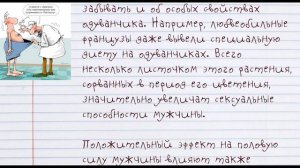 забывать и об особых свойствах
одуванчика. Например, любвеобильные
французы даже вывели специальную
диету на одуванчиках. Всего
несколько листочком этого растения,
сорванных в период его цветения,
значительно увеличат сексуальные
способности мужчины.
Положительный эффект на половую
силу мужчины влияют также